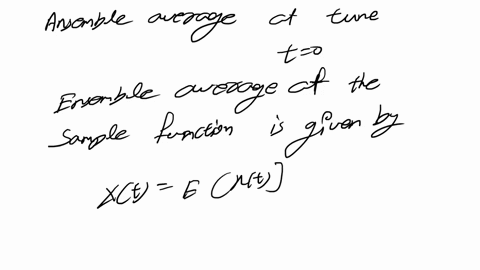 Ansemble average at tune
t=0
Ensemble average of the
sample function is given by
X(t) = E (x(t)]